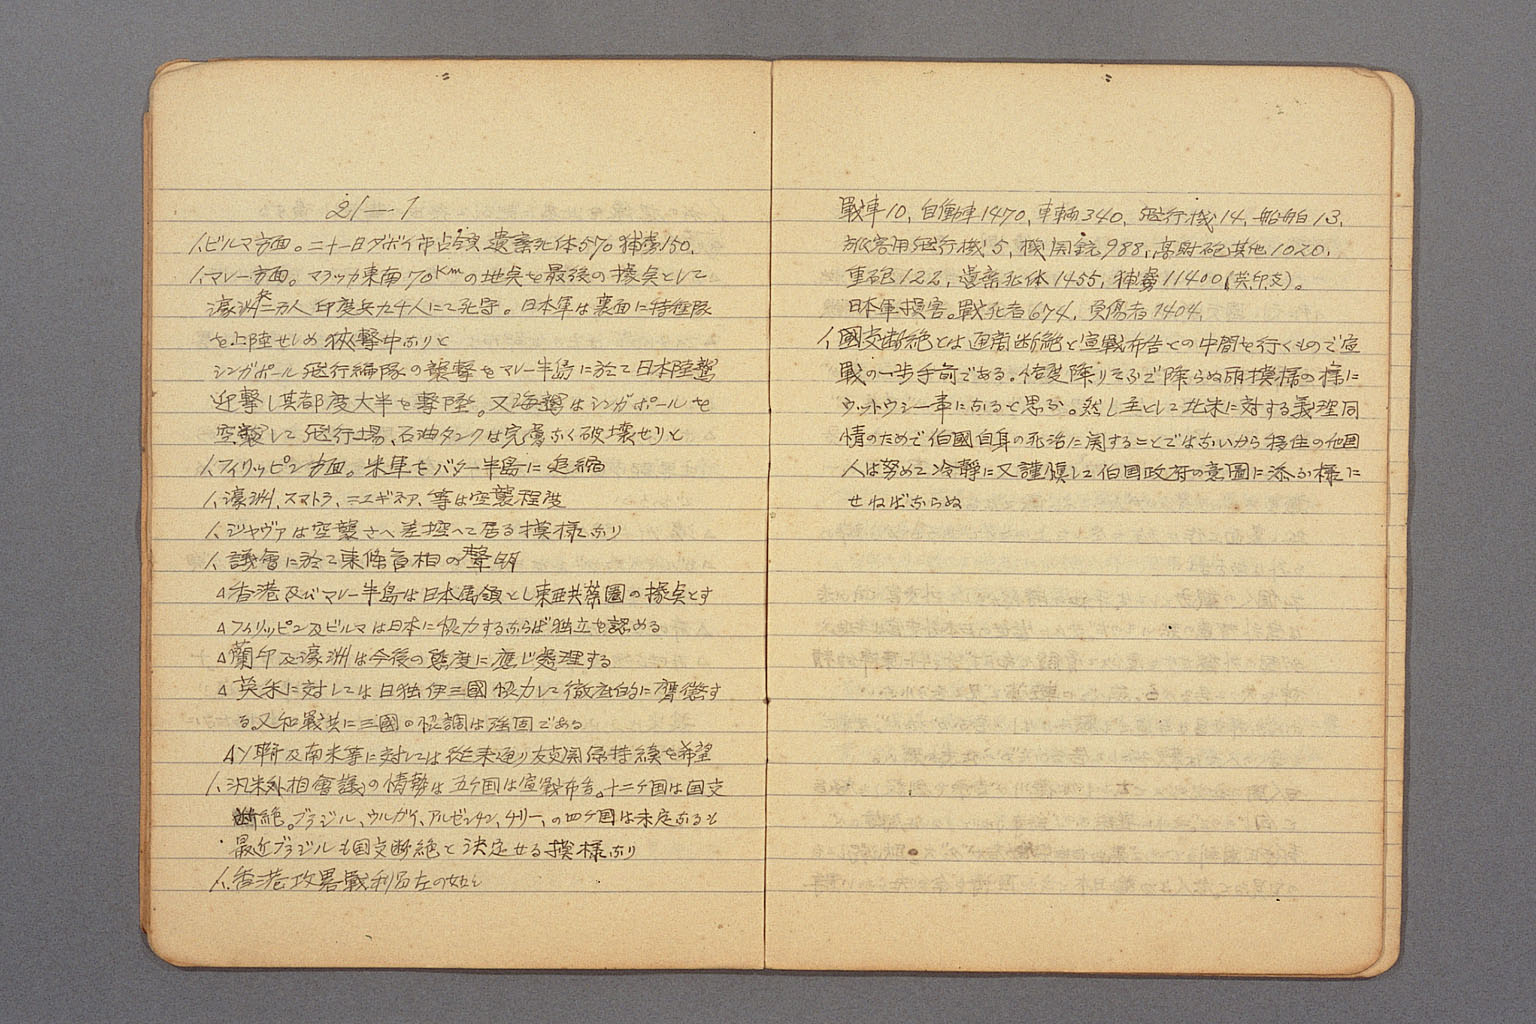 21―1
1、ビルマ方面。二十一日ダボイ市占領 遺棄死体570 捕虜150、
1、マレー方面。マラッカ東南70Kmの地点を最後の據点として
濠洲兵二万人 印度兵九千人にて死守。日本軍は裏面に特種隊
を上陸せしめ 狹撃中なりと
シンガポール飛行編隊の襲撃をマレー半島に於て日本陸鷲
迎撃し其都度大半を撃墜。又海鷲はシンガポールを
空襲して飛行場、石油タンクは完膚なく破壊せりと
1、フィリッピン方面。米軍をバター半島に追縮
1、濠洲、スマトラ、ニユギネア、等は空襲程度
1、ジャヴァは空襲さへ差控へて居る模様なり
1、議會に於て東條首相の聲明
△香港及びマレー半島は日本属領とし東亜共榮圏の據点とす
△フィリッピン及ビルマは日本に協力するならば独立を認める
△蘭印及濠洲は今後の態度に應じ処理する
△英米に対しては日独伊三國協力して徹底的に膺懲す
る。又和戰共に三國の協調は強固である
△ソ聯及南米等に対しては従来通り友交関係持続を希望
1、汎米外相會議の情勢は五ケ国は宣戰布告。十二ケ国は国交
断絶。ブラジル、ウルガイ、アルゼンチン、チリー、の四ケ国は未定なるも
最近ブラジルも国交断絶と決定せる模様なり
1、香港攻畧戰利品左の如し
戰車10、自働車1470、車輌340、飛行機14、船舶13、
旅客用飛行機5、機関銃988、高射砲其他1020、
重砲122、遺棄死体1455、捕虜11400(英印支)。
日本軍損害。戰死者674、負傷者1404、
1、國交断絶とは通商断絶と宣戰布告との中間を行くもので宣
戰の一歩手前である。恰度降りそふで降らぬ雨模様の様に
ウットウシー事になると思ふ。然し主として北米に対する義理同
情のためで伯國自身の死活に関することではないから移住の他国
人は努めて冷靜に又謹愼して伯国政府の意圖に添ふ様に
せねばならぬ